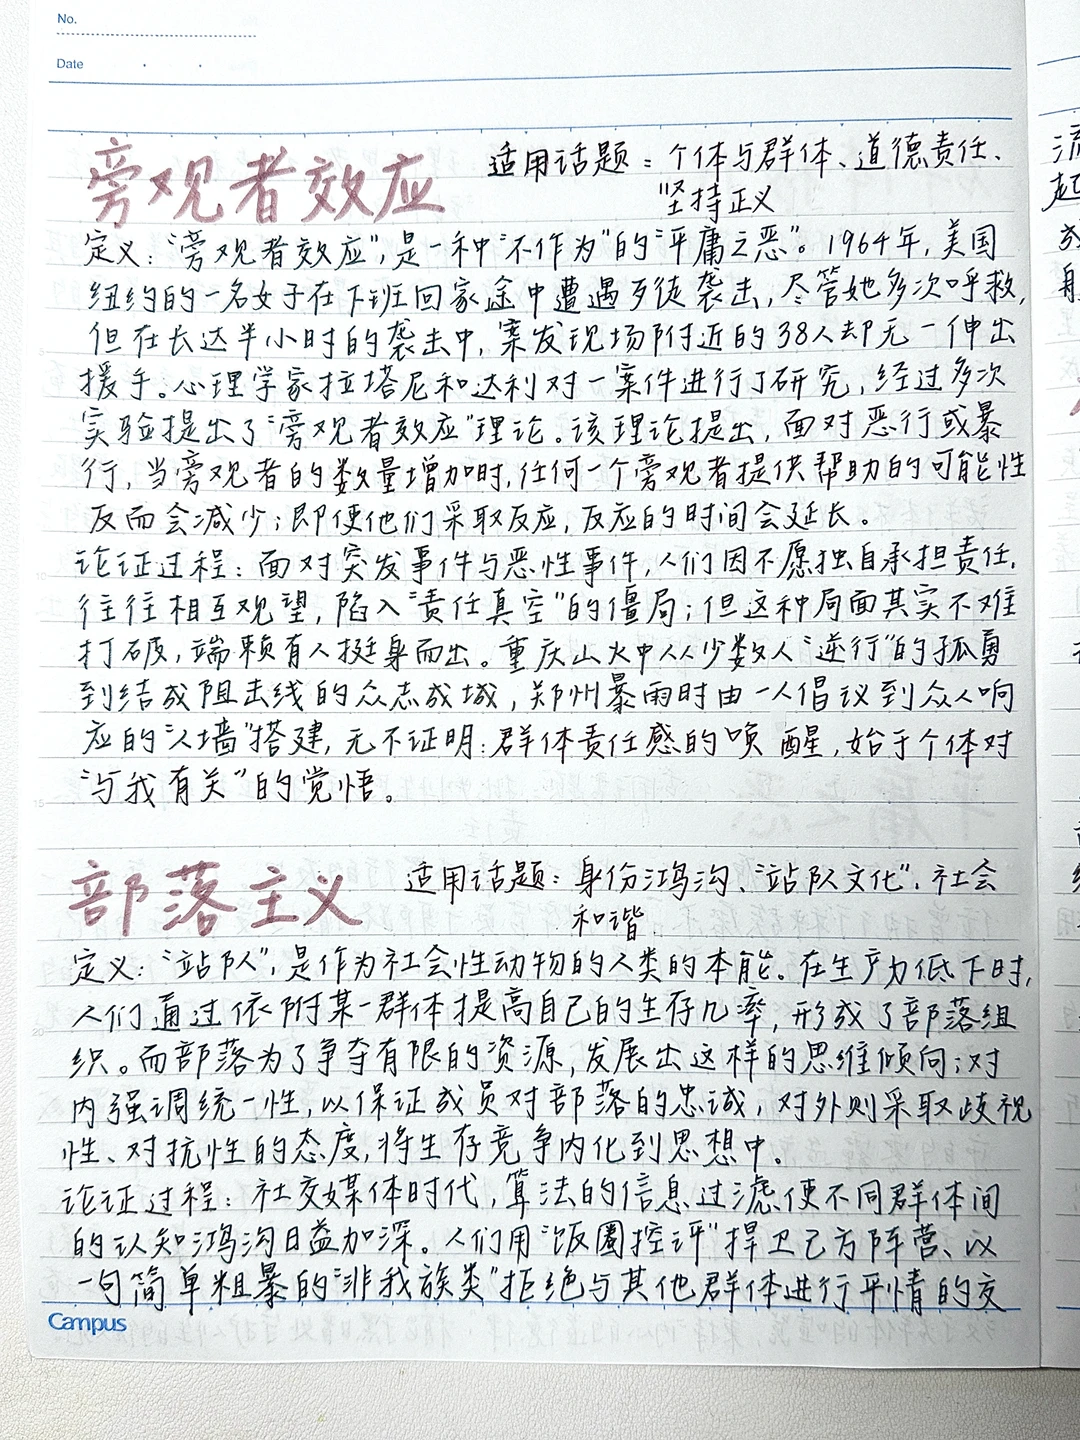 No.
Date
旁观者效应
适用话题：个体与群体、道德责任、
坚持正义
定义："旁观者效应"，是一种"不作为"的"平庸之恶"。1964年，美国
纽约的一名女子在下班回家途中遭遇歹徒袭击，尽管她多次呼救，
但在长达半小时的袭击中，案发现场附近的38人却无一伸出
援手。心理学家拉塔尼和达利对一案件进行了研究，经过多次
实验提出了"旁观者效应"理论。该理论提出，面对恶行或暴
行，当旁观者的数量增加时，任何一个旁观者提供帮助的可能性
反而会减少；即便他们采取反应，反应的时间会延长。
论证过程：面对突发事件与恶性事件，人们因不愿独自承担责任，
往往相互观望，陷入"责任真空"的僵局；但这种局面其实不难
打破，端赖有人挺身而出。重庆山火中从少数人"逆行"的孤勇
到结成阻击线的众志成城，郑州暴雨时由一人倡议到众人响
应的"人墙"搭建，无不证明：群体责任感的唤醒，始于个体对
"与我有关"的觉悟。
部落主义
适用话题：身份鸿沟、"站队文化"、社会
和谐
定义："站队"，是作为社会性动物的人类的本能。在生产力低下时，
人们通过依附某一群体提高自己的生存几率，形成了部落组
织。而部落为了争夺有限的资源，发展出这样的思维倾向；对
内强调统一性，以保证成员对部落的忠诚，对外则采取歧视
性、对抗性的态度，将生存竞争内化到思想中。
论证过程：社交媒体时代，算法的信息过滤使不同群体间
的认知鸿沟日益加深。人们用"饭圈控评"捍卫己方阵营、以
一句简单粗暴的"非我族类"拒绝与其他群体进行平情的交
Campus